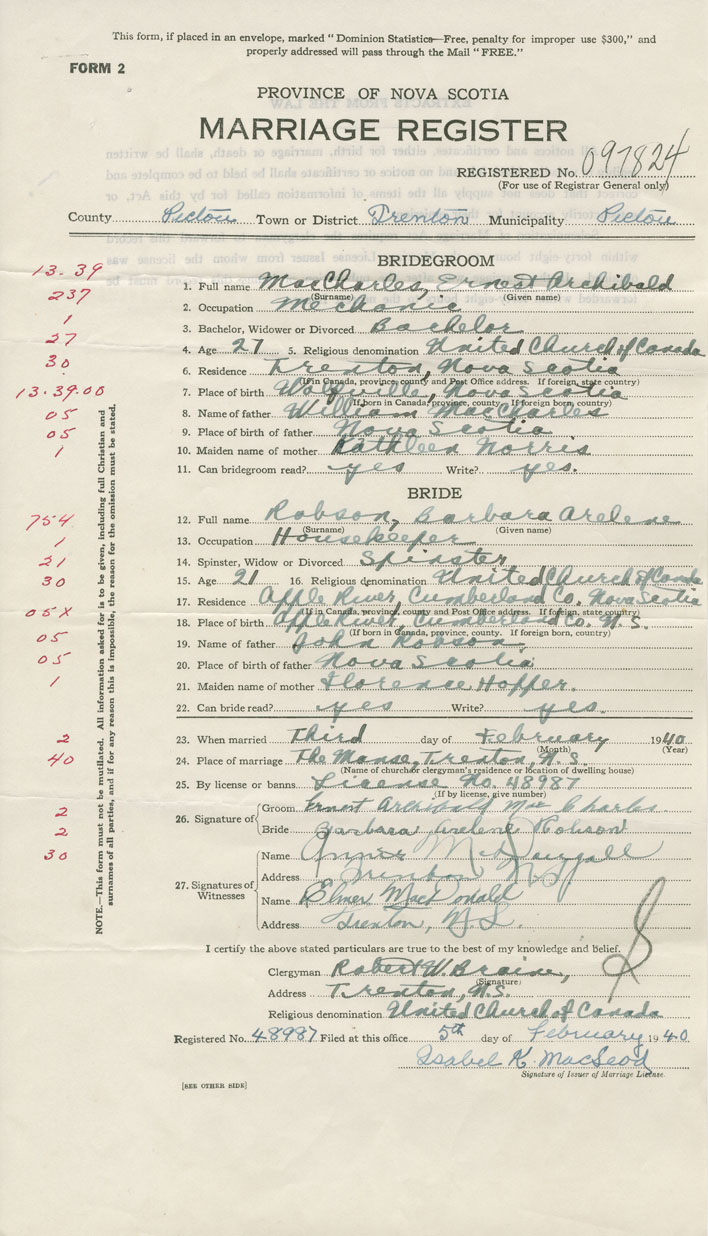 This form, if placed in an envelope, marked "Dominion Statistics—Free, penalty for improper use $300," and
properly addressed will pass through the Mail "FREE."
FORM 2
PROVINCE OF NOVA SCOTIA
MARRIAGE REGISTER
REGISTERED No. 097824
(For use of Registrar General only)
County Pictou Town or District Trenton Municipality Pictou
BRIDEGROOM
13.39
1. Full name MacCharles, Ernest Archibald
(Surname) (Given name)
237
2. Occupation Mechanic
1
3. Bachelor, Widower or Divorced Bachelor
27
4. Age 27 5. Religious denomination United Church of Canada
30
6. Residence Trenton, Nova Scotia
(If in Canada, province, county and Post Office address. If foreign, state country)
13.39.00
7. Place of birth Wolfville, Nova Scotia
(If born in Canada, province, county. If foreign born, country)
05
8. Name of father William MacCharles
05
9. Place of father Nova Scotia
1
10. Maiden name of mother Kathleen Norris
11. Can bridegroom read? yes Write? yes.
BRIDE
754
12. Full name Robson, Barbara Arelene
(Surname) (Given name)
1
13. Occupation Housekeeper
21
14. Spinster, Widow or Divorced Spinster
30
15. Age 21 16. Religious denomination United Church of Canada
17. Residence Apple River, Cumberland Co. Nova Scotia
(If in Canada, province, county and Post Office address. If foreign, state country)
05X
18. Place of birth Apple River, Cumberland Co. N.S.
(If born in Canada, province, county. If foreign born, country)
05
19. Name of father John Robson.
05
20. Place of birth of father Nova Scotia
1
21. Maiden name of mother Florence Hopper.
22. Can bride read? yes Write? yes.
2
23. When married Third day of February 1940
(Month) (Year)
40
24. Place of marriage The Manse, Trenton, N.S.
(Name of church or clergyman's residence or location of dwelling house)
25. By license or banns License No. 48987
(If by license, give number)
2
26. Signature of Groom Ernest Archibald MacCharles
2
Bride Barbara Arelene Robson
30
27. Signatures of Witnesses
Name Annie McDougall
Address Trenton NS
Name Elmer MacDonald
Address Trenton, N.S.
I certify the above stated particulars are true to the best of my knowledge and belief.
Clergyman Robert W. Braine,
(Signature)
Address Trenton, N.S.
Religious denomination United Church of Canada
Registered No. 48987 Filed at this office 5th day of February 1940
Isabel K. MacLeod
Signature of Issuer of Marriage License.
[SEE OTHER SIDE]
NOTE.—This form must not be mutilated. All information asked for is to be given, including full Christian and
surnames of all parties, and if for any reason this is impossible, the reason for the omission must be stated.